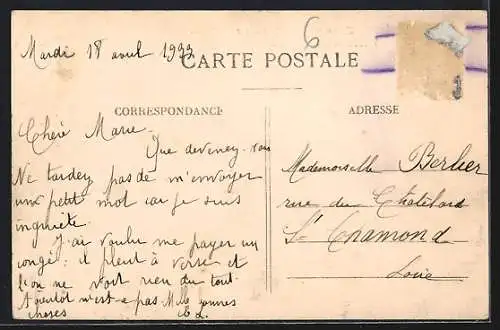 6
Mardi 18 avril 1933
CARTE POSTALE
CORRESPONDANCE
ADRESSE
Chère Marie.
Que devenez-vous
Ne tardez pas de m'envoyer
un petit mot car je suis
inquiète.
J'ai voulu me payer un
congé : il pleut à verse et
l'on ne voit rien du tout.
A bientôt n'est-ce pas Mlle bonnes
choses
Mademoiselle Berlier
rue du Chatelard
St Chamond
Loire